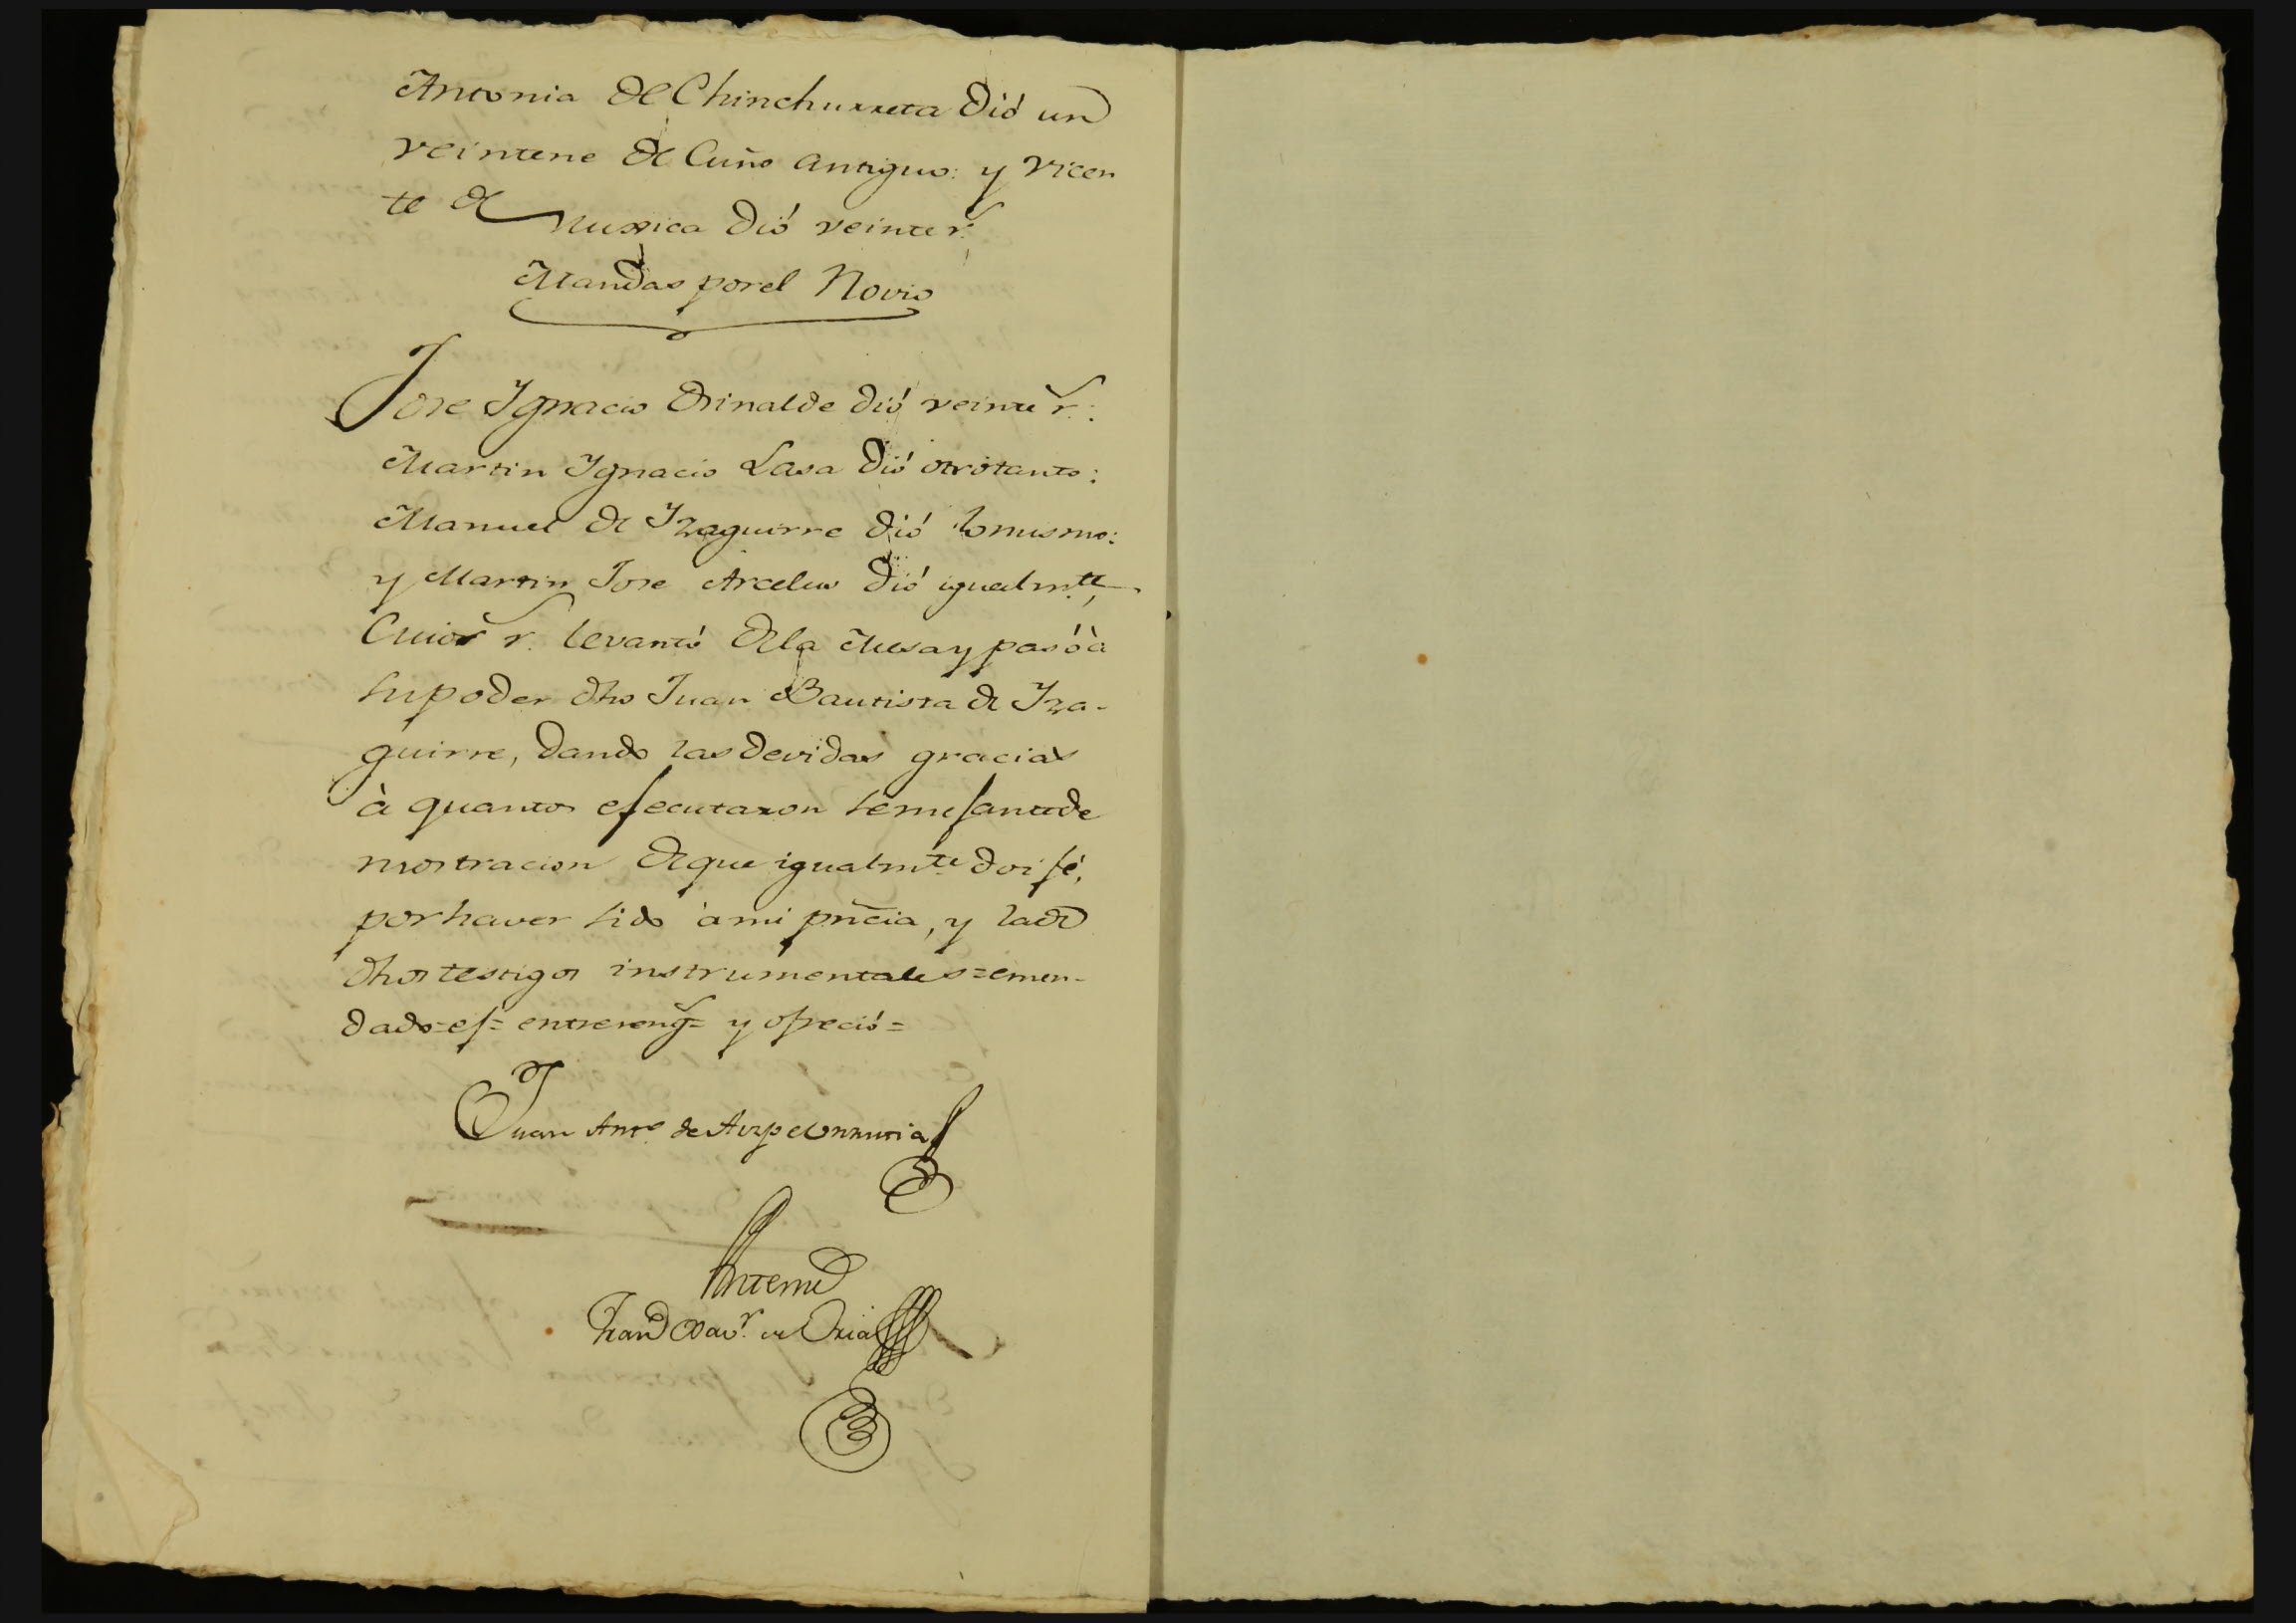 Antonia de Chinchurreta dió un
veintene de Cuño antiguo: y Vicen
te de Muxica dió veinte r.
Mandas porel Novio
Jose Ygnacio Orinalde dió veinte r.:
Martin Ygnacio Lasa dió otrotanto:
Manuel de Yzaguirre dió lo mismo:
y Martin Jose Arcelus dió igualm.te,
Cuios r. levantó dela Mesa y pasó à
su poder dho Juan Bautista de Yza-
guirre, dando las devidas gracias
à quantos efecutaron semefante de
mostracion de que igualm.te doi fé,
por haver sido à mi pñcia, y la de
dhos testigos instrumentales=emen-
dado=ef= entrereng= y ofreció=
Juan Ant.o de Aizpeurrutia
Antemi
Fran Xav.r de Oria